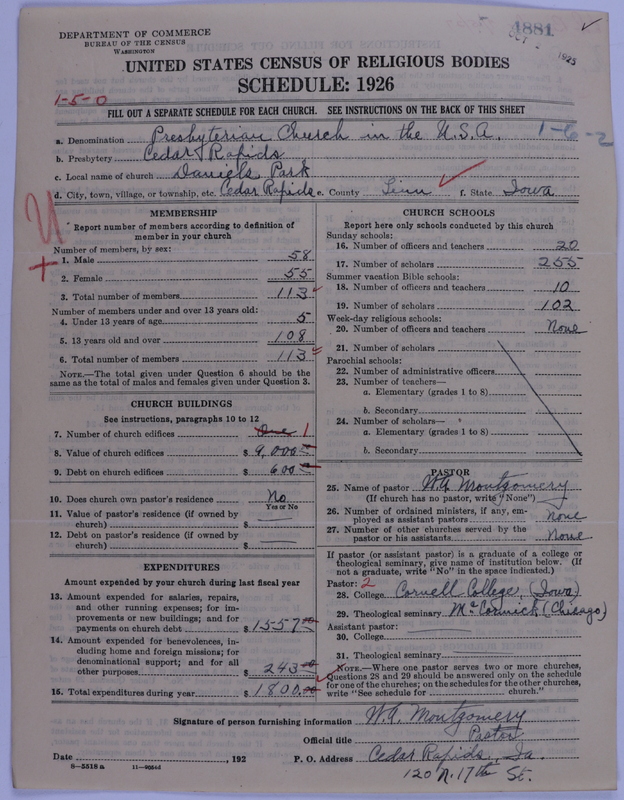 DEPARTMENT OF COMMERCE
BUREAU OF THE CENSUS
WASHINGTON
1881
OCT 1925
UNITED STATES CENSUS OF RELIGIOUS BODIES
SCHEDULE: 1926
1-5-0
FILL OUT A SEPARATE SCHEDULE FOR EACH CHURCH. SEE INSTRUCTIONS ON THE BACK OF THIS SHEET
a. Denomination Presbyterian Church in the U.S.A. 1-6-2
b. Presbytery Cedar Rapids
c. Local name of church Daniels Park
d. City, town, village, or township, etc. Cedar Rapids e. County Linn f. State Iowa
MEMBERSHIP
Report number of members according to definition of
member in your church
Number of members, by sex:
1. Male 58
2. Female 55
3. Total number of members 113
Number of members under and over 13 years old:
4. Under 13 years of age 5
5. 13 years old and over 108
6. Total number of members 113
NOTE.—The total given under Question 6 should be
same as the total of males and females given under Question 3.
CHURCH BUILDINGS
See instructions, paragraphs 10 to 12
7. Number of church edifices One 1
8. Value of church edifices $ 9,000
9. Debt on church edifices $ 600
10. Does church own pastor's residence No
Yes or No
11. Value of pastor's residence (if owned by
church) $
12. Debt on pastor's residence (if owned by
church) $
EXPENDITURES
Amount expended by your church during last fiscal year
13. Amount expended for salaries, repairs,
and other running expenses; for im-
provements or new buildings; and for
payments on church debt $ 1557.00
14. Amount expended for benevolences, in-
cluding home and foreign missions; for
denominational support; and for all
other purposes $ 243.00
15. Total expenditures during year $ 1800.00
CHURCH SCHOOLS
Report here only schools conducted by this church
Sunday schools:
16. Number of officers and teachers 20
17. Number of scholars 255
Summer vacation Bible schools:
18. Number of officers and teachers 10
19. Number of scholars 102
Week-day religious schools:
20. Number of officers and teachers None
21. Number of scholars
Parochial schools:
22. Number of administrative officers
23. Number of teachers—
a. Elementary (grades 1 to 8)
b. Secondary
24. Number of scholars—
a. Elementary (grades 1 to 8)
b. Secondary
PASTOR
25. Name of pastor W.A. Montgomery
(If church has no pastor, write "None")
26. Number of ordained ministers, if any, em-
ployed as assistant pastors None
27. Number of other churches served by the
pastor or his assistants None
If pastor (or assistant pastor) is a graduate of a college or
theological seminary, give name of institution below. (If
not a graduate, write "No" in the space indicated.)
Pastor: 2
28. College Cornell College, (Iowa)
29. Theological seminary McCormick (Chicago)
Assistant pastor:
30. College
31. Theological seminary
NOTE.—Where one pastor serves two or more churches,
Questions 28 and 29 should be answered only on the schedule
for one of the churches; on the schedules for the other churches,
write "See schedule for church."
Signature of person furnishing information W.A. Montgomery
Official title Pastor
Date , 192 P. O. Address Cedar Rapids, Ia.
8-5518 a
120 N. 17th St.